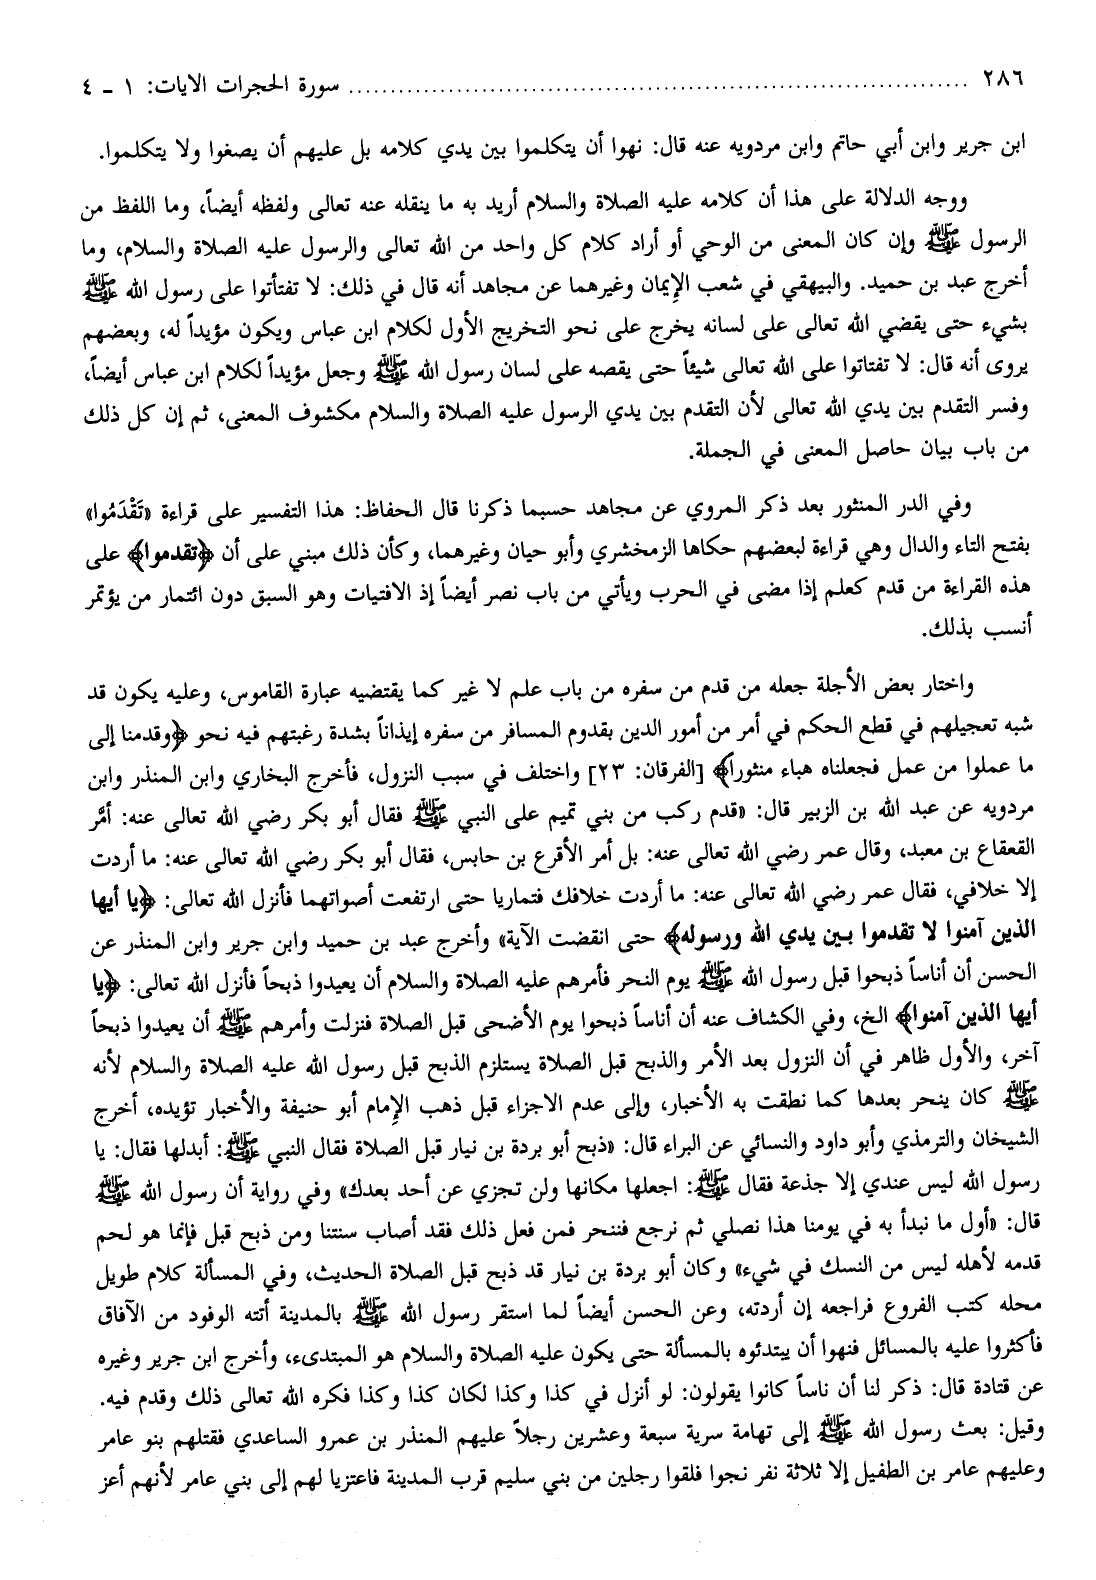 ٢٨٦ ........................................ سورة الحجرات الآيات: ١ ـ ٤
ابن جرير وابن أبي حاتم وابن مردويه عنه قال: نهوا أن يتكلموا بين يدي كلامه بل عليهم أن يصغوا ولا يتكلموا.
ووجه الدلالة على هذا أن كلامه عليه الصلاة والسلام أريد به ما ينقله عنه تعالى ولفظه أيضاً، وما اللفظ من
الرسول ﷺ وإن كان المعنى من الوحي أو أراد كلام كل واحد من الله تعالى والرسول عليه الصلاة والسلام، وما
أخرج عبد بن حميد. والبيهقي في شعب الإيمان وغيرهما عن مجاهد أنه قال في ذلك: لا تفتأتوا على رسول الله ﷺ
بشيء حتى يقضي الله تعالى على لسانه يخرج على نحو التخريج الأول لكلام ابن عباس ويكون مؤيداً له، وبعضهم
يروى أنه قال: لا تفتاتوا على الله تعالى شيئاً حتى يقصه على لسان رسول الله ﷺ وجعل مؤيداً لكلام ابن عباس أيضاً،
وفسر التقدم بين يدي الله تعالى لأن التقدم بين يدي الرسول عليه الصلاة والسلام مكشوف المعنى، ثم إن كل ذلك
من باب بيان حاصل المعنى في الجملة.
وفي الدر المنثور بعد ذكر المروي عن مجاهد حسبما ذكرنا قال الحفاظ: هذا التفسير على قراءة «تَقْدَمُوا»
بفتح التاء والدال وهي قراءة لبعضهم حكاها الزمخشري وأبو حيان وغيرهما، وكأن ذلك مبني على أن ﴿تقدموا﴾ على
هذه القراءة من قدم كعلم إذا مضى في الحرب ويأتي من باب نصر أيضاً إذ الافتيات وهو السبق دون ائتمار من يؤتمر
أنسب بذلك.
واختار بعض الأجلة جعله من قدم من سفره من باب علم لا غير كما يقتضيه عبارة القاموس، وعليه يكون قد
شبه تعجيلهم في قطع الحكم في أمر من أمور الدين بقدوم المسافر من سفره إيذاناً بشدة رغبتهم فيه نحو ﴿وقدمنا إلى
ما عملوا من عمل فجعلناه هباء منثورا﴾ [الفرقان: ٢٣] واختلف في سبب النزول، فأخرج البخاري وابن المنذر وابن
مردويه عن عبد الله بن الزبير قال: «قدم ركب من بني تميم على النبي ﷺ فقال أبو بكر رضي الله تعالى عنه: أمَّر
القعقاع بن معبد، وقال عمر رضي الله تعالى عنه: بل أمر الأقرع بن حابس، فقال أبو بكر رضي الله تعالى عنه: ما أردت
إلا خلافي، فقال عمر رضي الله تعالى عنه: ما أردت خلافك فتماريا حتى ارتفعت أصواتهما فأنزل الله تعالى: ﴿يا أيها
الذين آمنوا لا تقدموا بين يدي الله ورسوله﴾ حتى انقضت الآية» وأخرج عبد بن حميد وابن جرير وابن المنذر عن
الحسن أن أناساً ذبحوا قبل رسول الله ﷺ يوم النحر فأمرهم عليه الصلاة والسلام أن يعيدوا ذبحاً فأنزل الله تعالى: ﴿يا
أيها الذين آمنوا﴾ الخ، وفي الكشاف عنه أن أناساً ذبحوا يوم الأضحى قبل الصلاة فنزلت وأمرهم ﷺ أن يعيدوا ذبحاً
آخر، والأول ظاهر في أن النزول بعد الأمر والذبح قبل الصلاة يستلزم الذبح قبل رسول الله عليه الصلاة والسلام لأنه
ﷺ كان ينحر بعدها كما نطقت به الأخبار، وإلى عدم الاجزاء قبل ذهب الإمام أبو حنيفة والأخبار تؤيده، أخرج
الشيخان والترمذي وأبو داود والنسائي عن البراء قال: «ذبح أبو بردة بن نيار قبل الصلاة فقال النبي ﷺ: أبدلها فقال: يا
رسول الله ليس عندي إلا جذعة فقال ﷺ: اجعلها مكانها ولن تجزي عن أحد بعدك» وفي رواية أن رسول الله ﷺ
قال: «أول ما نبدأ به في يومنا هذا نصلي ثم نرجع فننحر فمن فعل ذلك فقد أصاب سنتنا ومن ذبح قبل فإنما هو لحم
قدمه لأهله ليس من النسك في شيء» وكان أبو بردة بن نيار قد ذبح قبل الصلاة الحديث، وفي المسألة كلام طويل
محله كتب الفروع فراجعه إن أردته، وعن الحسن أيضاً لما استقر رسول الله ﷺ بالمدينة أتته الوفود من الآفاق
فأكثروا عليه بالمسائل فنهوا أن يبتدئوه بالمسألة حتى يكون عليه الصلاة والسلام هو المبتدىء، وأخرج ابن جرير وغيره
عن قتادة قال: ذكر لنا أن ناساً كانوا يقولون: لو أنزل في كذا وكذا لكان كذا وكذا فكره الله تعالى ذلك وقدم فيه.
وقيل: بعث رسول الله ﷺ إلى تهامة سرية سبعة وعشرين رجلاً عليهم المنذر بن عمرو الساعدي فقتلهم بنو عامر
وعليهم عامر بن الطفيل إلا ثلاثة نفر نجوا فلقوا رجلين من بني سليم قرب المدينة فاعتزيا لهم إلى بني عامر لأنهم أعز